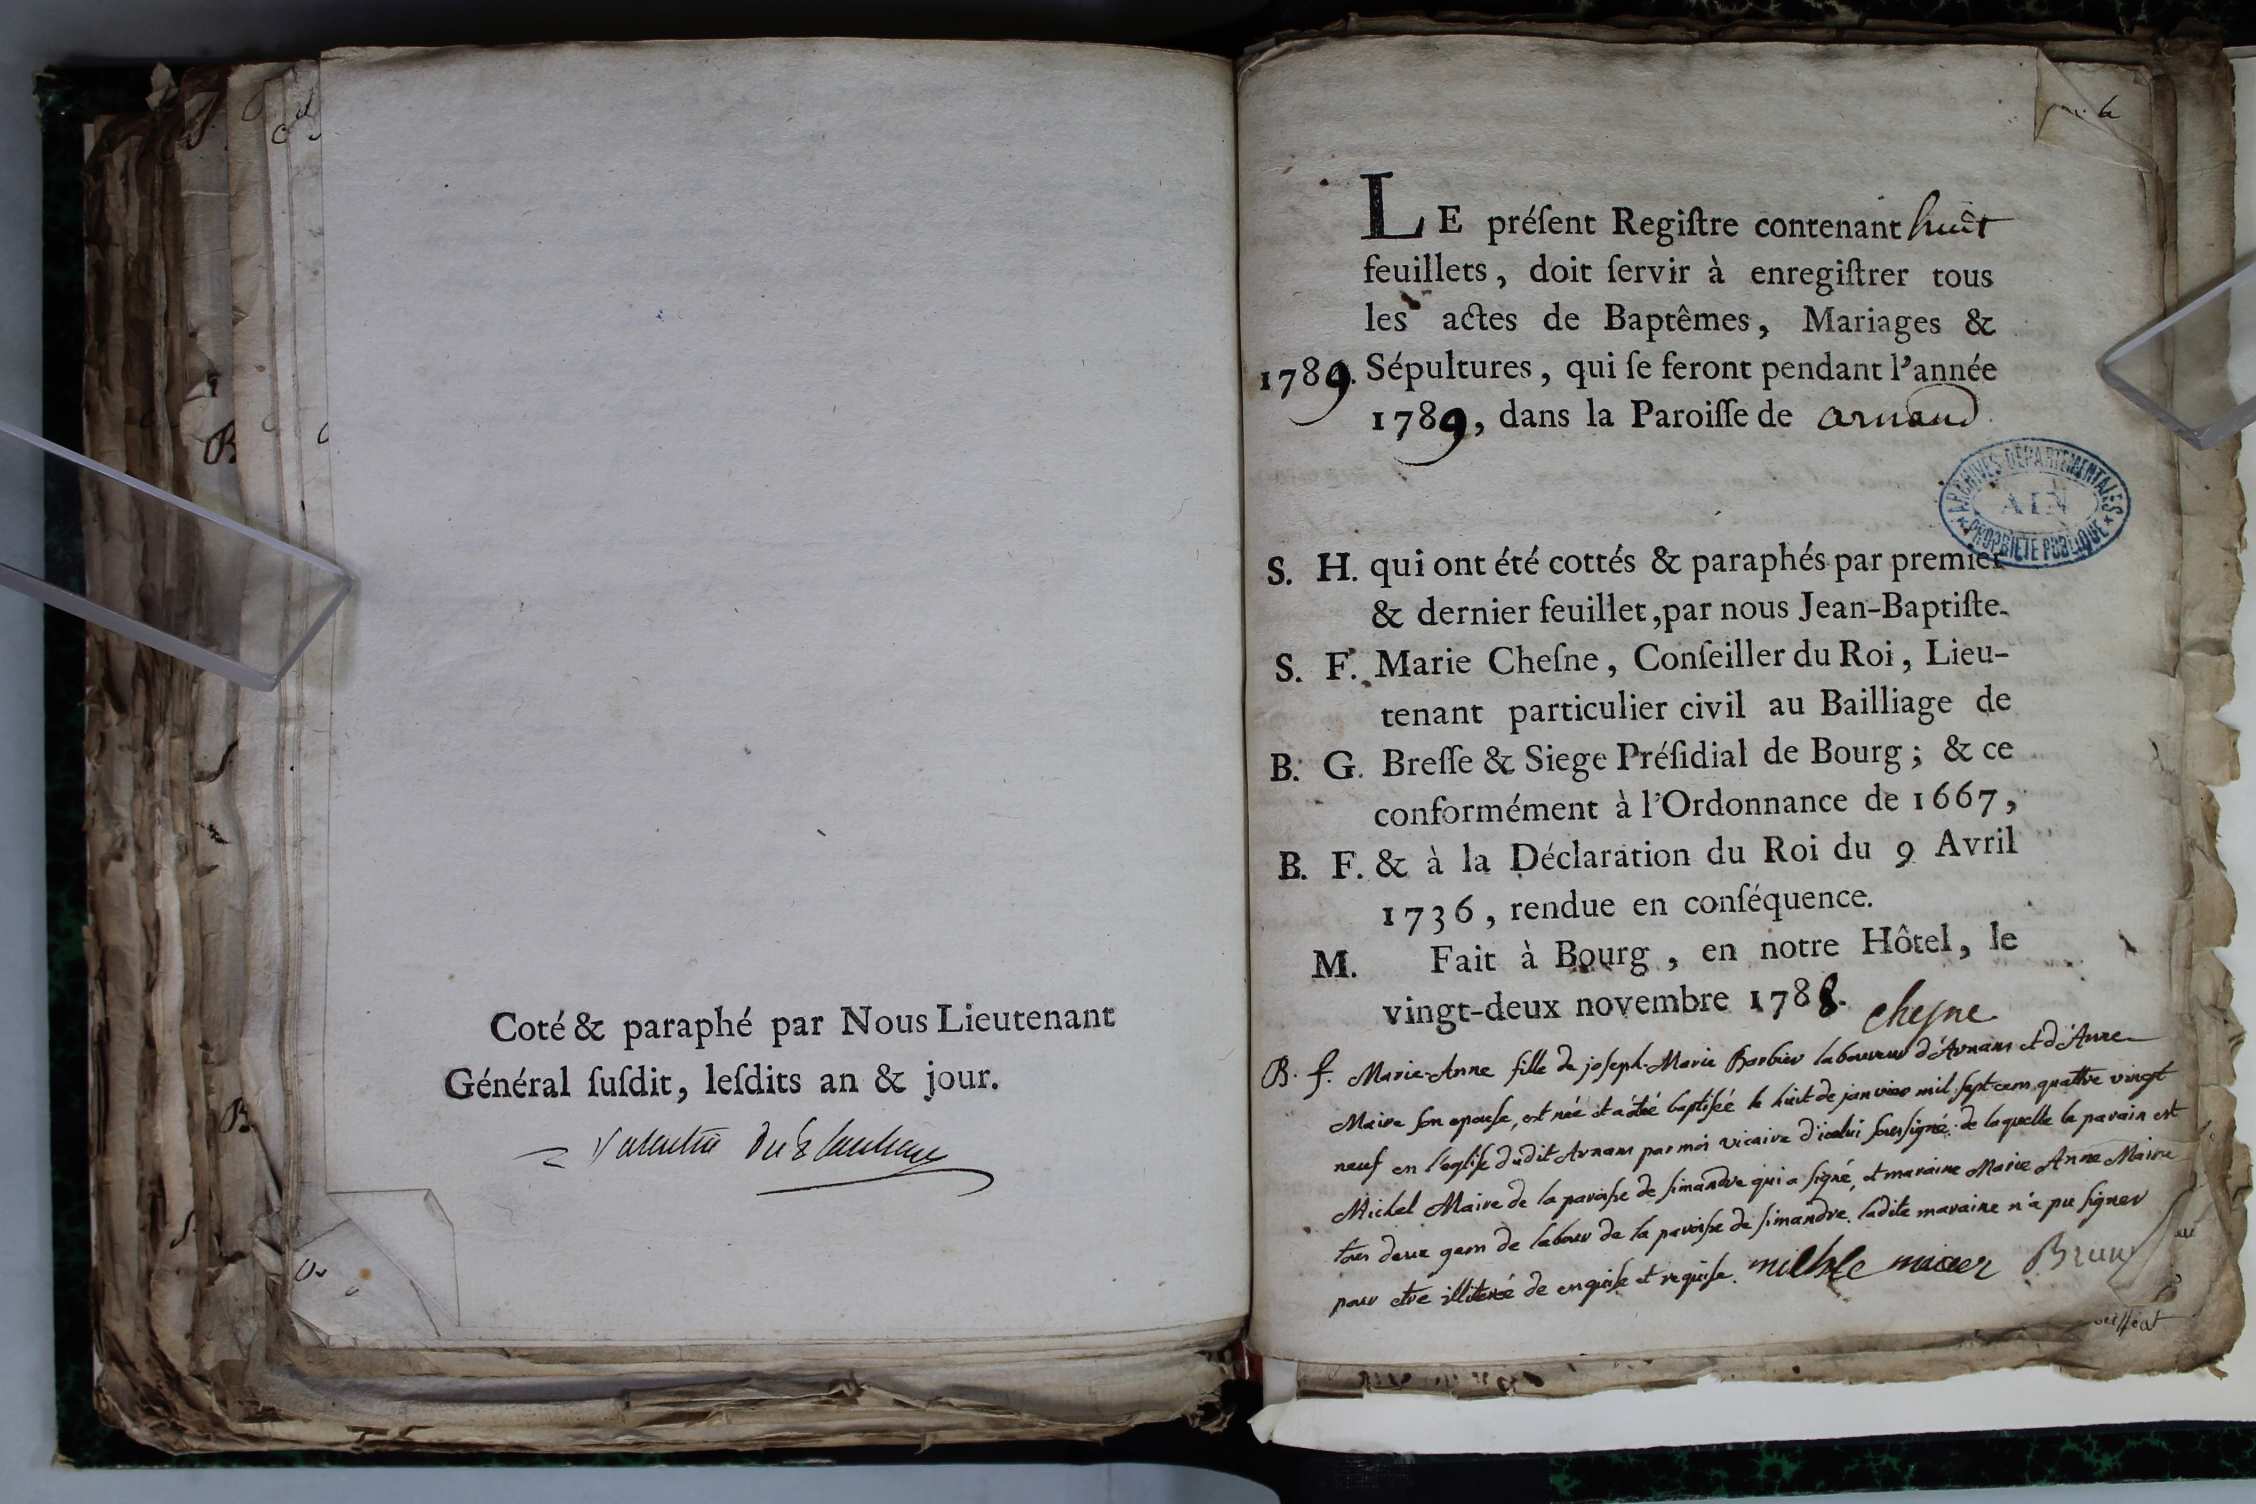 Coté & paraphé par Nous Lieutenant
Général ſuſdit, leſdits an & jour.
LE préſent Regiſtre contenant huit
feuillets, doit ſervir à enregiſtrer tous
les actes de Baptêmes, Mariages &
1789. Sépultures, qui ſe feront pendant l'année
1789, dans la Paroiſſe de arnand
ARCHIVES DÉPARTEMENTALES
AIN
PROPRIÉTÉ PUBLIQUE
S. H. qui ont été cottés & paraphés par premier
& dernier feuillet, par nous Jean-Baptiſte-
S. F. Marie Cheſne, Conſeiller du Roi, Lieu-
tenant particulier civil au Bailliage de
B. G. Breſſe & Siege Préſidial de Bourg; & ce
conformément à l'Ordonnance de 1667,
B. F. & à la Déclaration du Roi du 9 Avril
1736, rendue en conſéquence.
M. Fait à Bourg, en notre Hôtel, le
vingt-deux novembre 1788.
cheſne
B. f. Marie-Anne fille de joſeph-Marie Barbier laboureur d'Arnans et d'Anne
Maire ſon epouſe, est née et a été baptiſée le huit de janvier mil ſept cem quattre vingt
neuf en l'egliſe dudit Arnans par moi vicaire d'icelui ſousſigné. de laquelle le parain est
Michel Maire de la paroiſſe de ſimandre qui a ſigné, et maraine Marie Anne Maire
tous deux gens de labour de la paroiſſe de ſimandre. ladite maraine n'a pu ſigner
pour etre illiterée de enquiſe et requiſe.